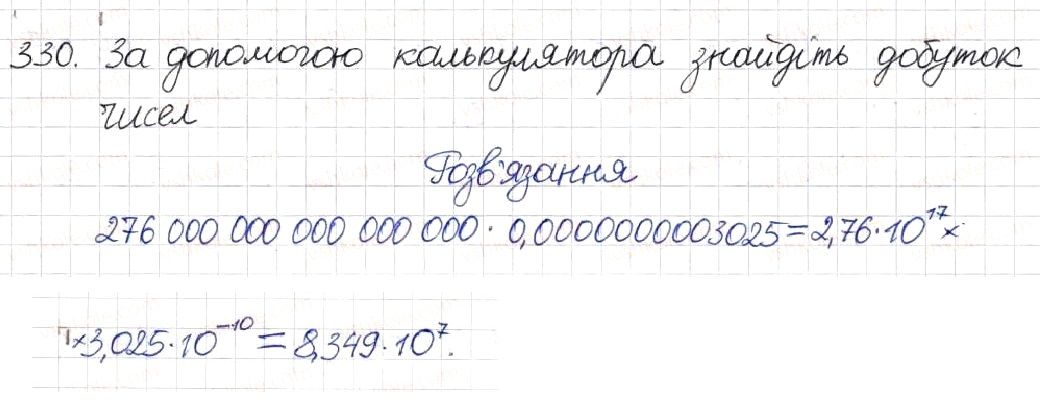 330. За допомогою калькулятора знайдіть добуток
чисел
Розв'язання
276 000 000 000 000 000 · 0,0000000003025 = 2,76·10¹⁷ ×
×3,025·10⁻¹⁰ = 8,349·10⁷.